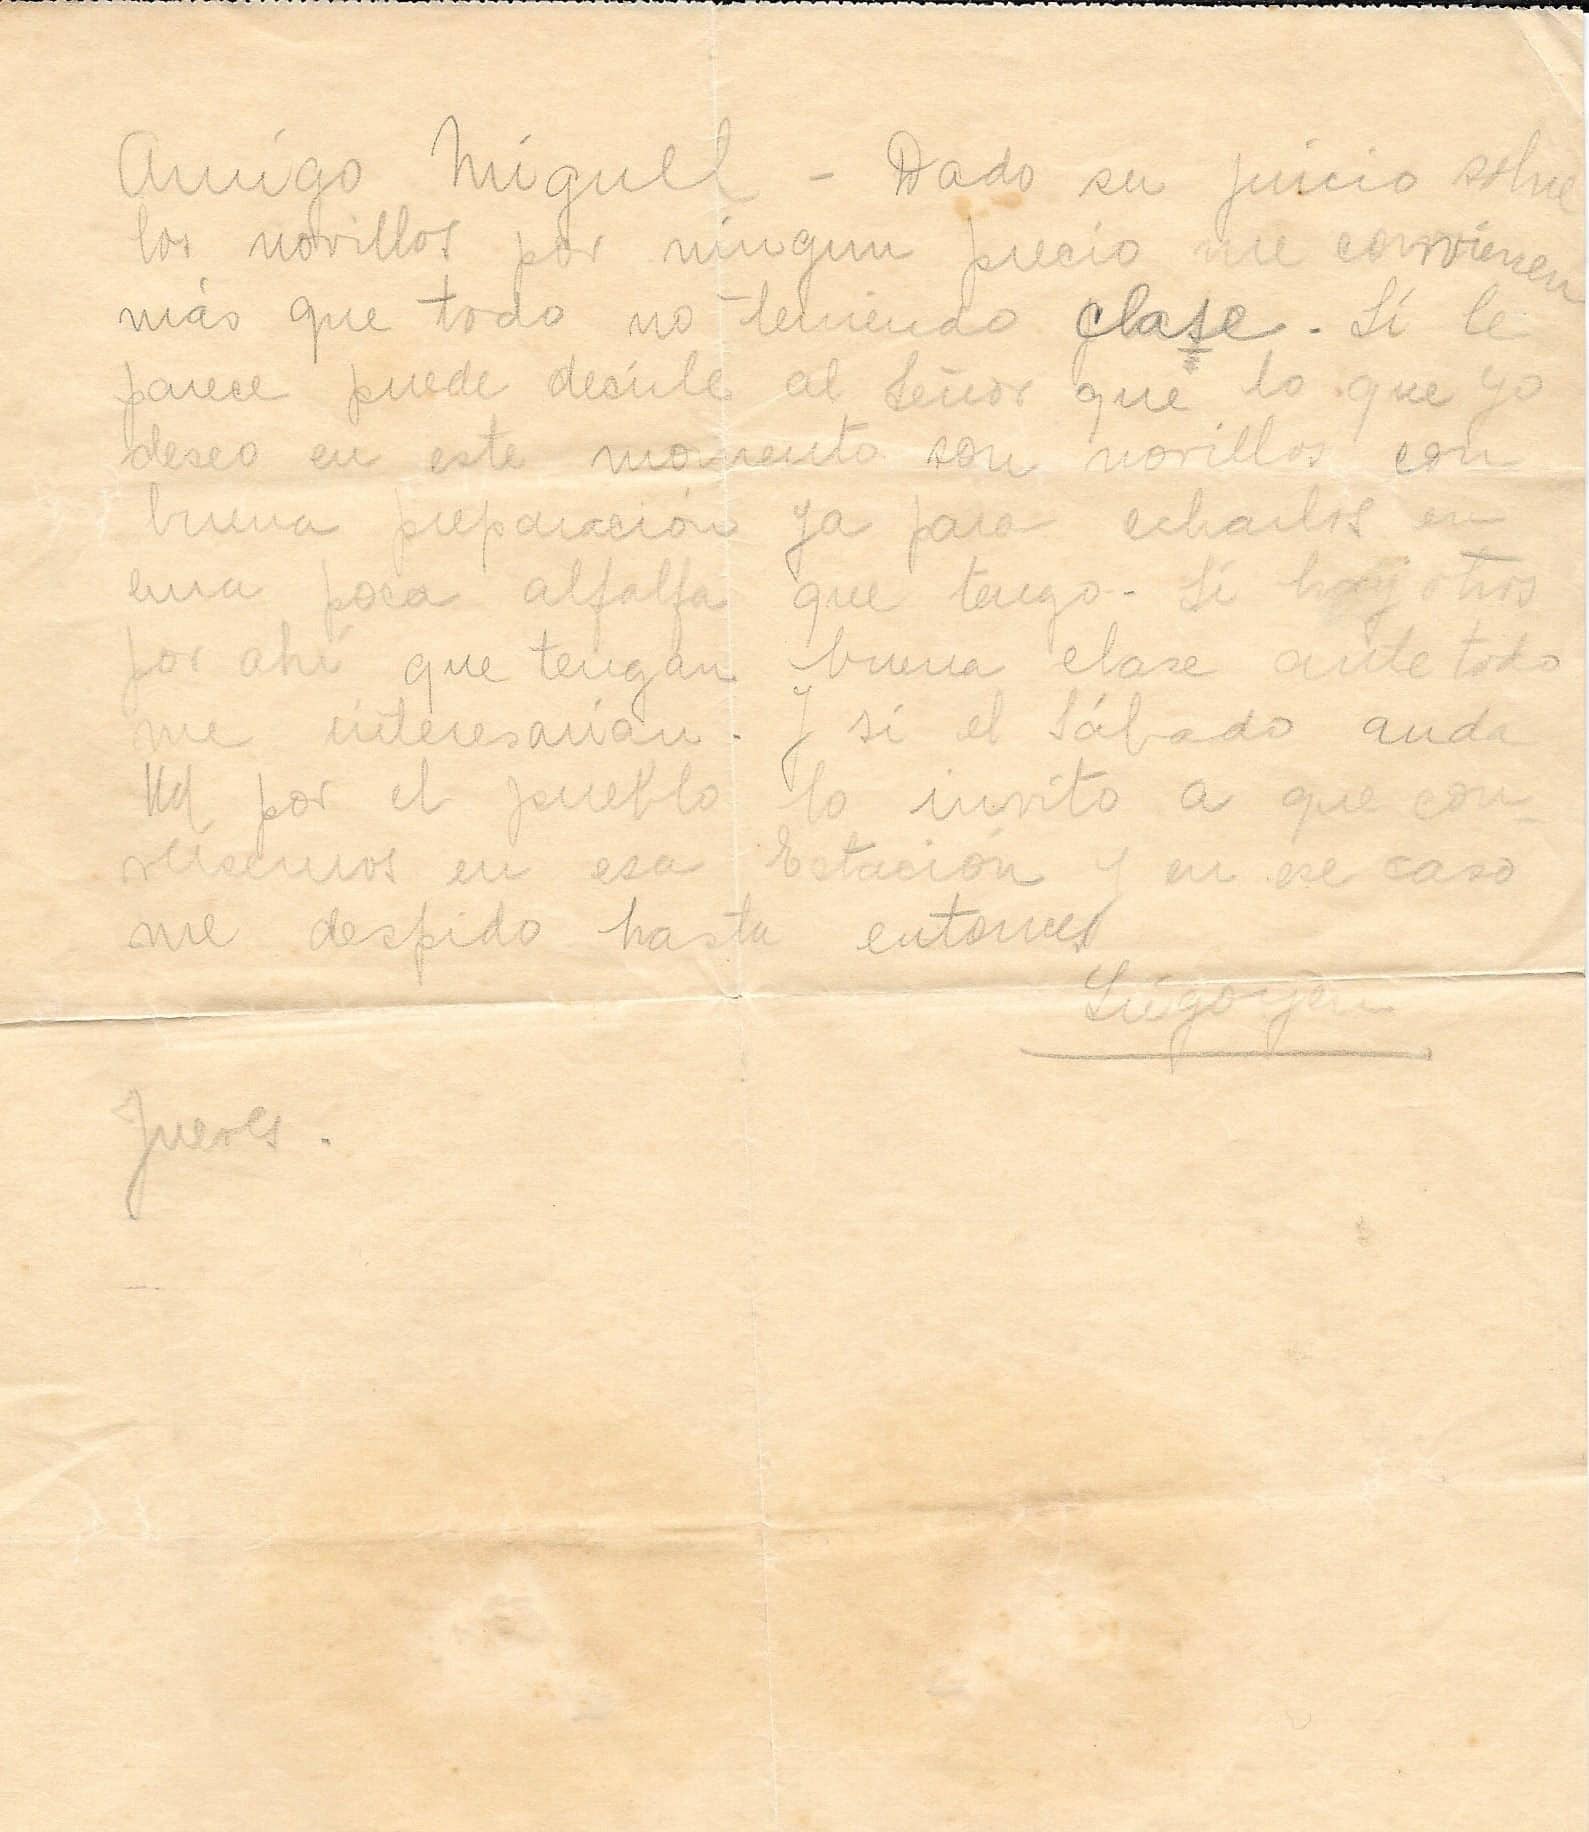 Amigo Miguel - Dado su juicio sobre
los novillos por ningun precio me convienen
más que todo no teniendo clase. Si le
parece puede decirle al Señor que lo que yo
deseo en este momento son novillos con
buena preparación ya para echarlos en
una poca alfalfa que tengo - Si hay otros
por ahí que tengan buena clase ante todo
me interesarían. Y si el Sábado anda
Ud por el pueblo lo invito a que con-
versemos en esa Estación y en ese caso
me despido hasta entonces
Jueves.